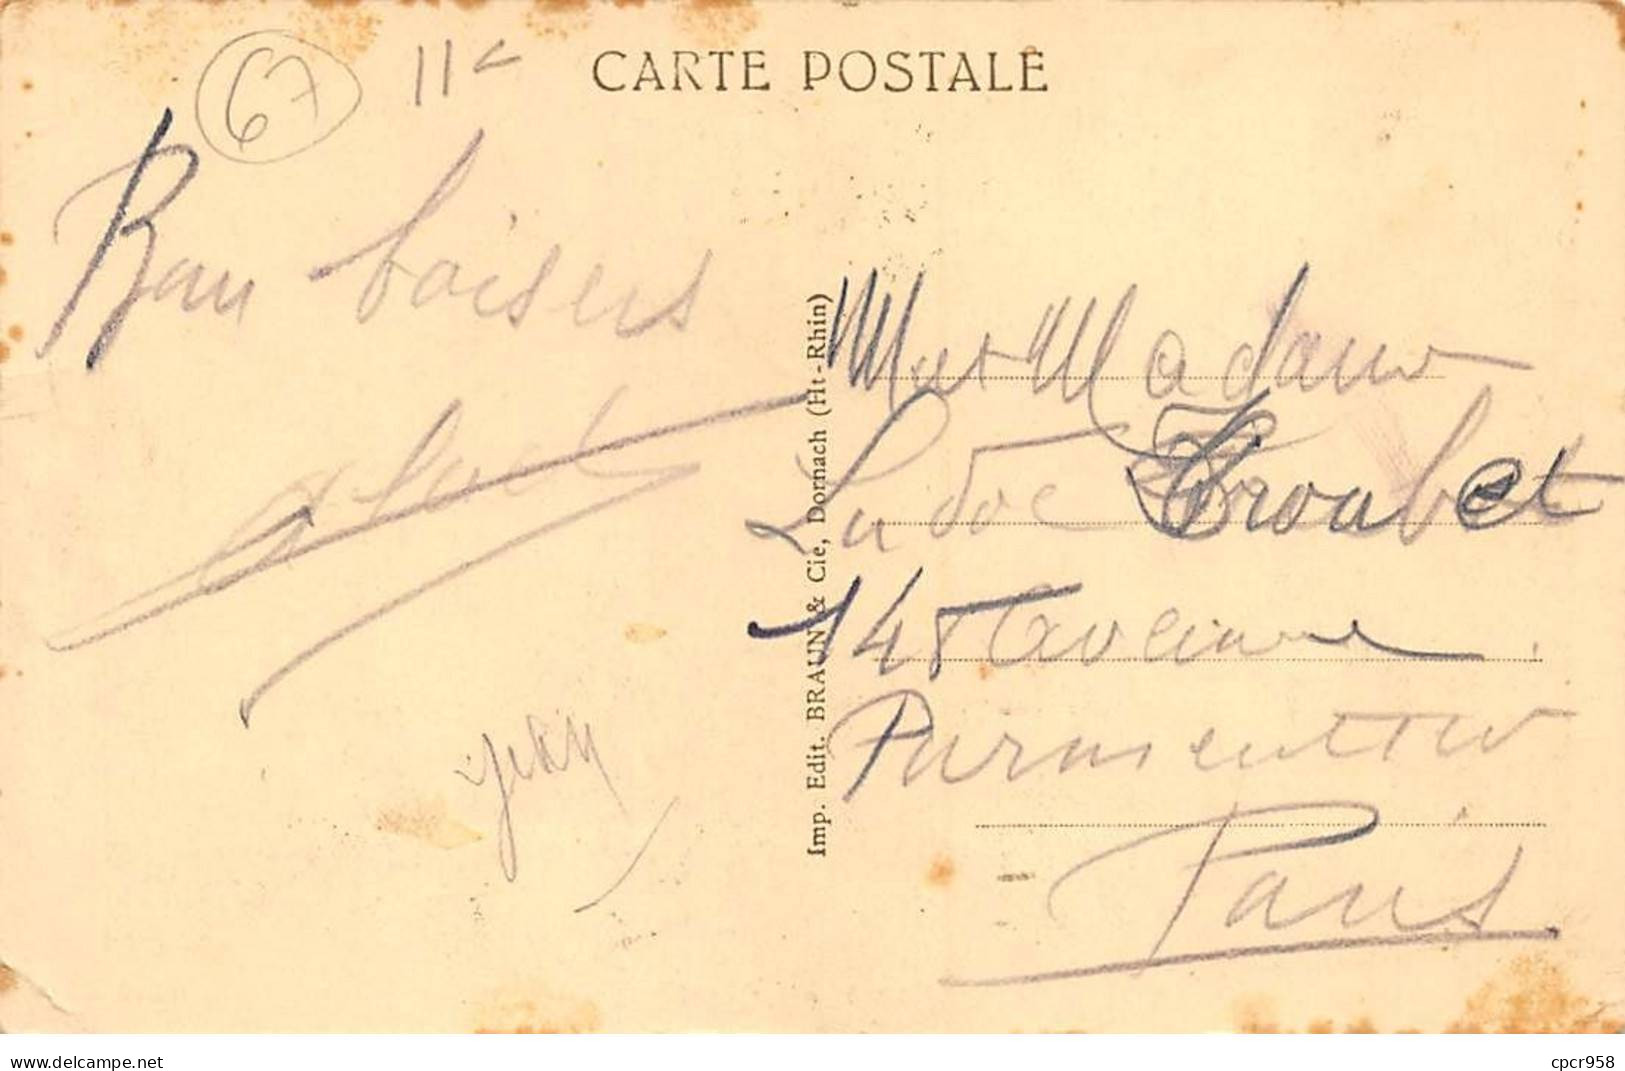 67
11
CARTE POSTALE
Bon baisers
Imp. Edit. BRAUN & Cie, Dornach (Ht-Rhin)
Mr et Madame
Ludoc Troubet
148 avenue
Parmentier
Paris
www.delcampe.net
cpcr958